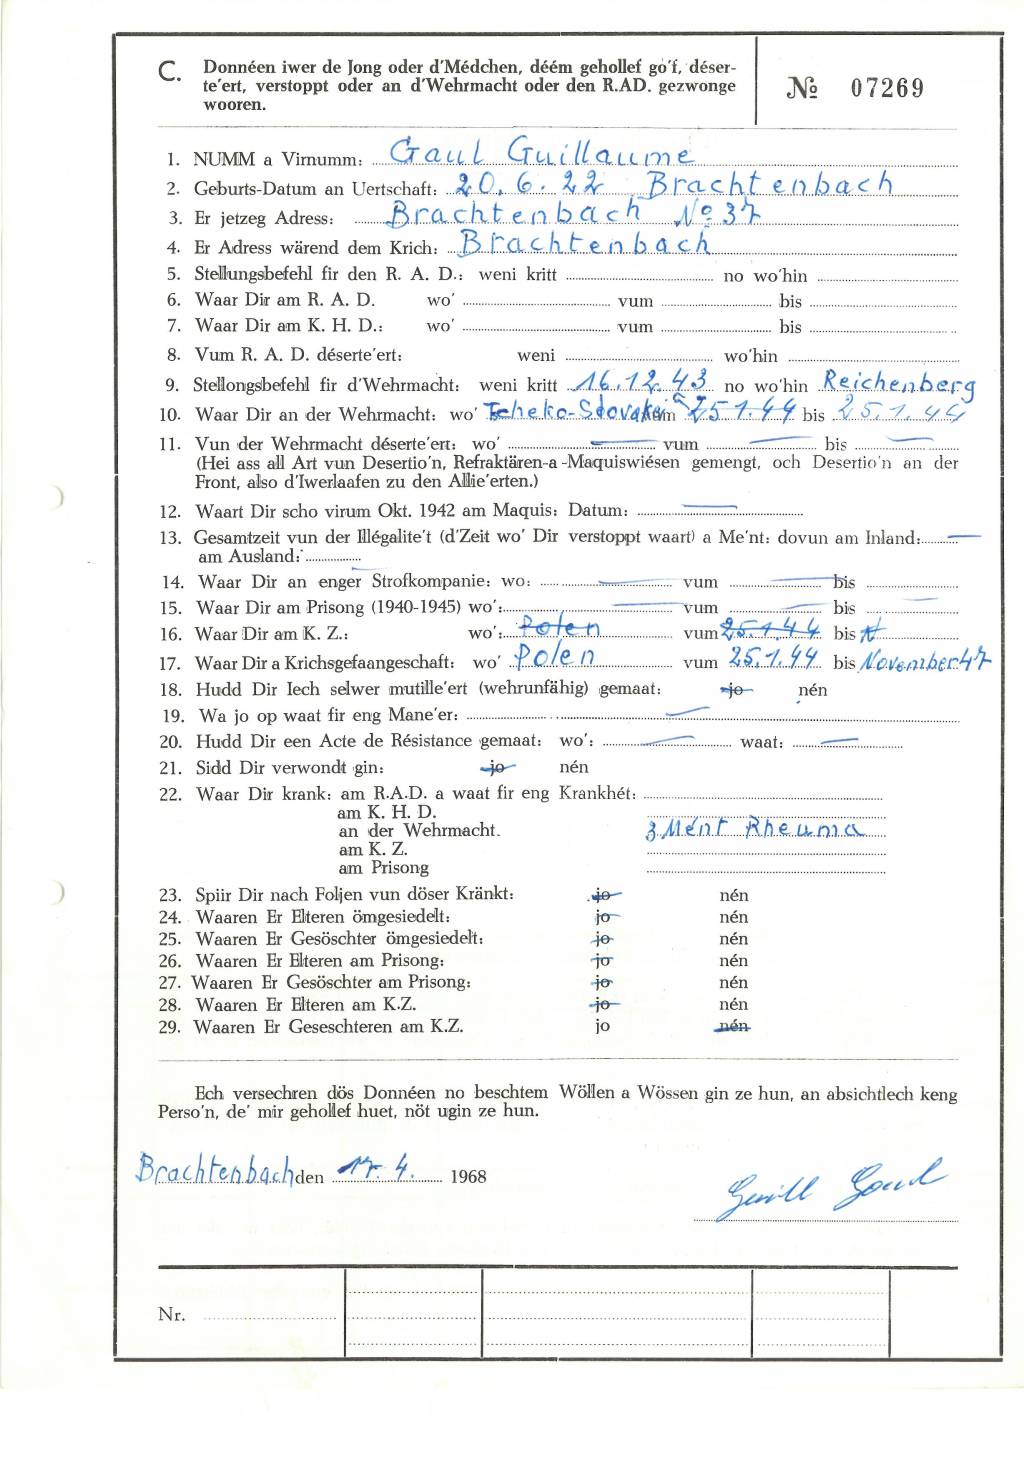 C. Donnéen iwer de Jong oder d'Médchen, déém gehollef go'f, déser-
te'ert, verstoppt oder an d'Wehrmacht oder den R.AD. gezwonge
wooren.
№ 07269
1. NUMM a Virnumm: Gaul Guillaume
2. Geburts-Datum an Uertschaft: 20.6.22 Brachtenbach
3. Er jetzeg Adress: Brachtenbach No 37
4. Er Adress wärend dem Krich: Brachtenbach
5. Stellungsbefehl fir den R. A. D.: weni kritt no wo'hin
6. Waar Dir am R. A. D. wo' vum bis
7. Waar Dir am K. H. D.: wo' vum bis
8. Vum R. A. D. déserte'ert: weni wo'hin
9. Stellongsbefehl fir d'Wehrmacht: weni kritt 16.12.43 no wo'hin Reichenberg
10. Waar Dir an der Wehrmacht: wo' Tcheko-Slovakei 25.1.44 bis 25.1.44
11. Vun der Wehrmacht déserte'ert: wo' vum bis
(Hei ass all Art vun Desertio'n, Refraktären-a-Maquiswiésen gemengt, och Desertio'n an der
Front, also d'Iwerlaafen zu den Allie'erten.)
12. Waart Dir scho virum Okt. 1942 am Maquis: Datum:
13. Gesamtzeit vun der Illégalite't (d'Zeit wo' Dir verstoppt waart) a Me'nt: dovun am Inland:
am Ausland:
14. Waar Dir an enger Strofkompanie: wo: vum bis
15. Waar Dir am Prisong (1940-1945) wo': vum bis
16. Waar Dir am K. Z.: wo': Polen vum 25.1.44 bis
17. Waar Dir a Krichsgefaangeschaft: wo' Polen vum 25.1.44 bis November 47
18. Hudd Dir Iech selwer mutille'ert (wehrunfähig) gemaat: jo nén
19. Wa jo op waat fir eng Mane'er:
20. Hudd Dir een Acte de Résistance gemaat: wo': waat:
21. Sidd Dir verwondt gin: jo nén
22. Waar Dir krank: am R.A.D. a waat fir eng Krankhét:
am K. H. D.
an der Wehrmacht. 3 Ment Rheuma
am K. Z.
am Prisong
23. Spiir Dir nach Foljen vun döser Kränkt: jo nén
24. Waaren Er Elteren ömgesiedelt: jo nén
25. Waaren Er Gesöschter ömgesiedelt: jo nén
26. Waaren Er Elteren am Prisong: jo nén
27. Waaren Er Gesöschter am Prisong: jo nén
28. Waaren Er Elteren am K.Z. jo nén
29. Waaren Er Geseschteren am K.Z. jo nén
Ech versechren dös Donnéen no beschtem Wöllen a Wössen gin ze hun, an absichtlech keng
Perso'n, de' mir gehollef huet, nöt ugin ze hun.
Brachtenbach den 17.4. 1968
Guill Gaul
Nr.